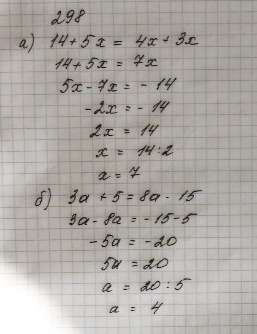 298
а) 14 + 5x = 4x + 3x
14 + 5x = 7x
5x - 7x = - 14
-2x = - 14
2x = 14
x = 14:2
x = 7
б) 3a + 5 = 8a - 15
3a - 8a = -15 - 5
-5a = -20
5a = 20
a = 20 : 5
a = 4